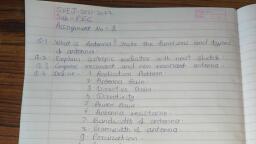 Assignment No: 3
Q.1 What is Antenna? State the functions and types of antenna
Q.2 Explain isotropic radiator with neat sketch
Q.3 Compare resonant and non resonant antenna
Q.4 Define: 1. Radiation Pattern
2. Antenna Gain
3. Directive Gain
4. Directivity
5. Power Gain
6. Antenna resistance
7. Bandwidth of antenna
8. Beamwidth of antenna
9. Polarization